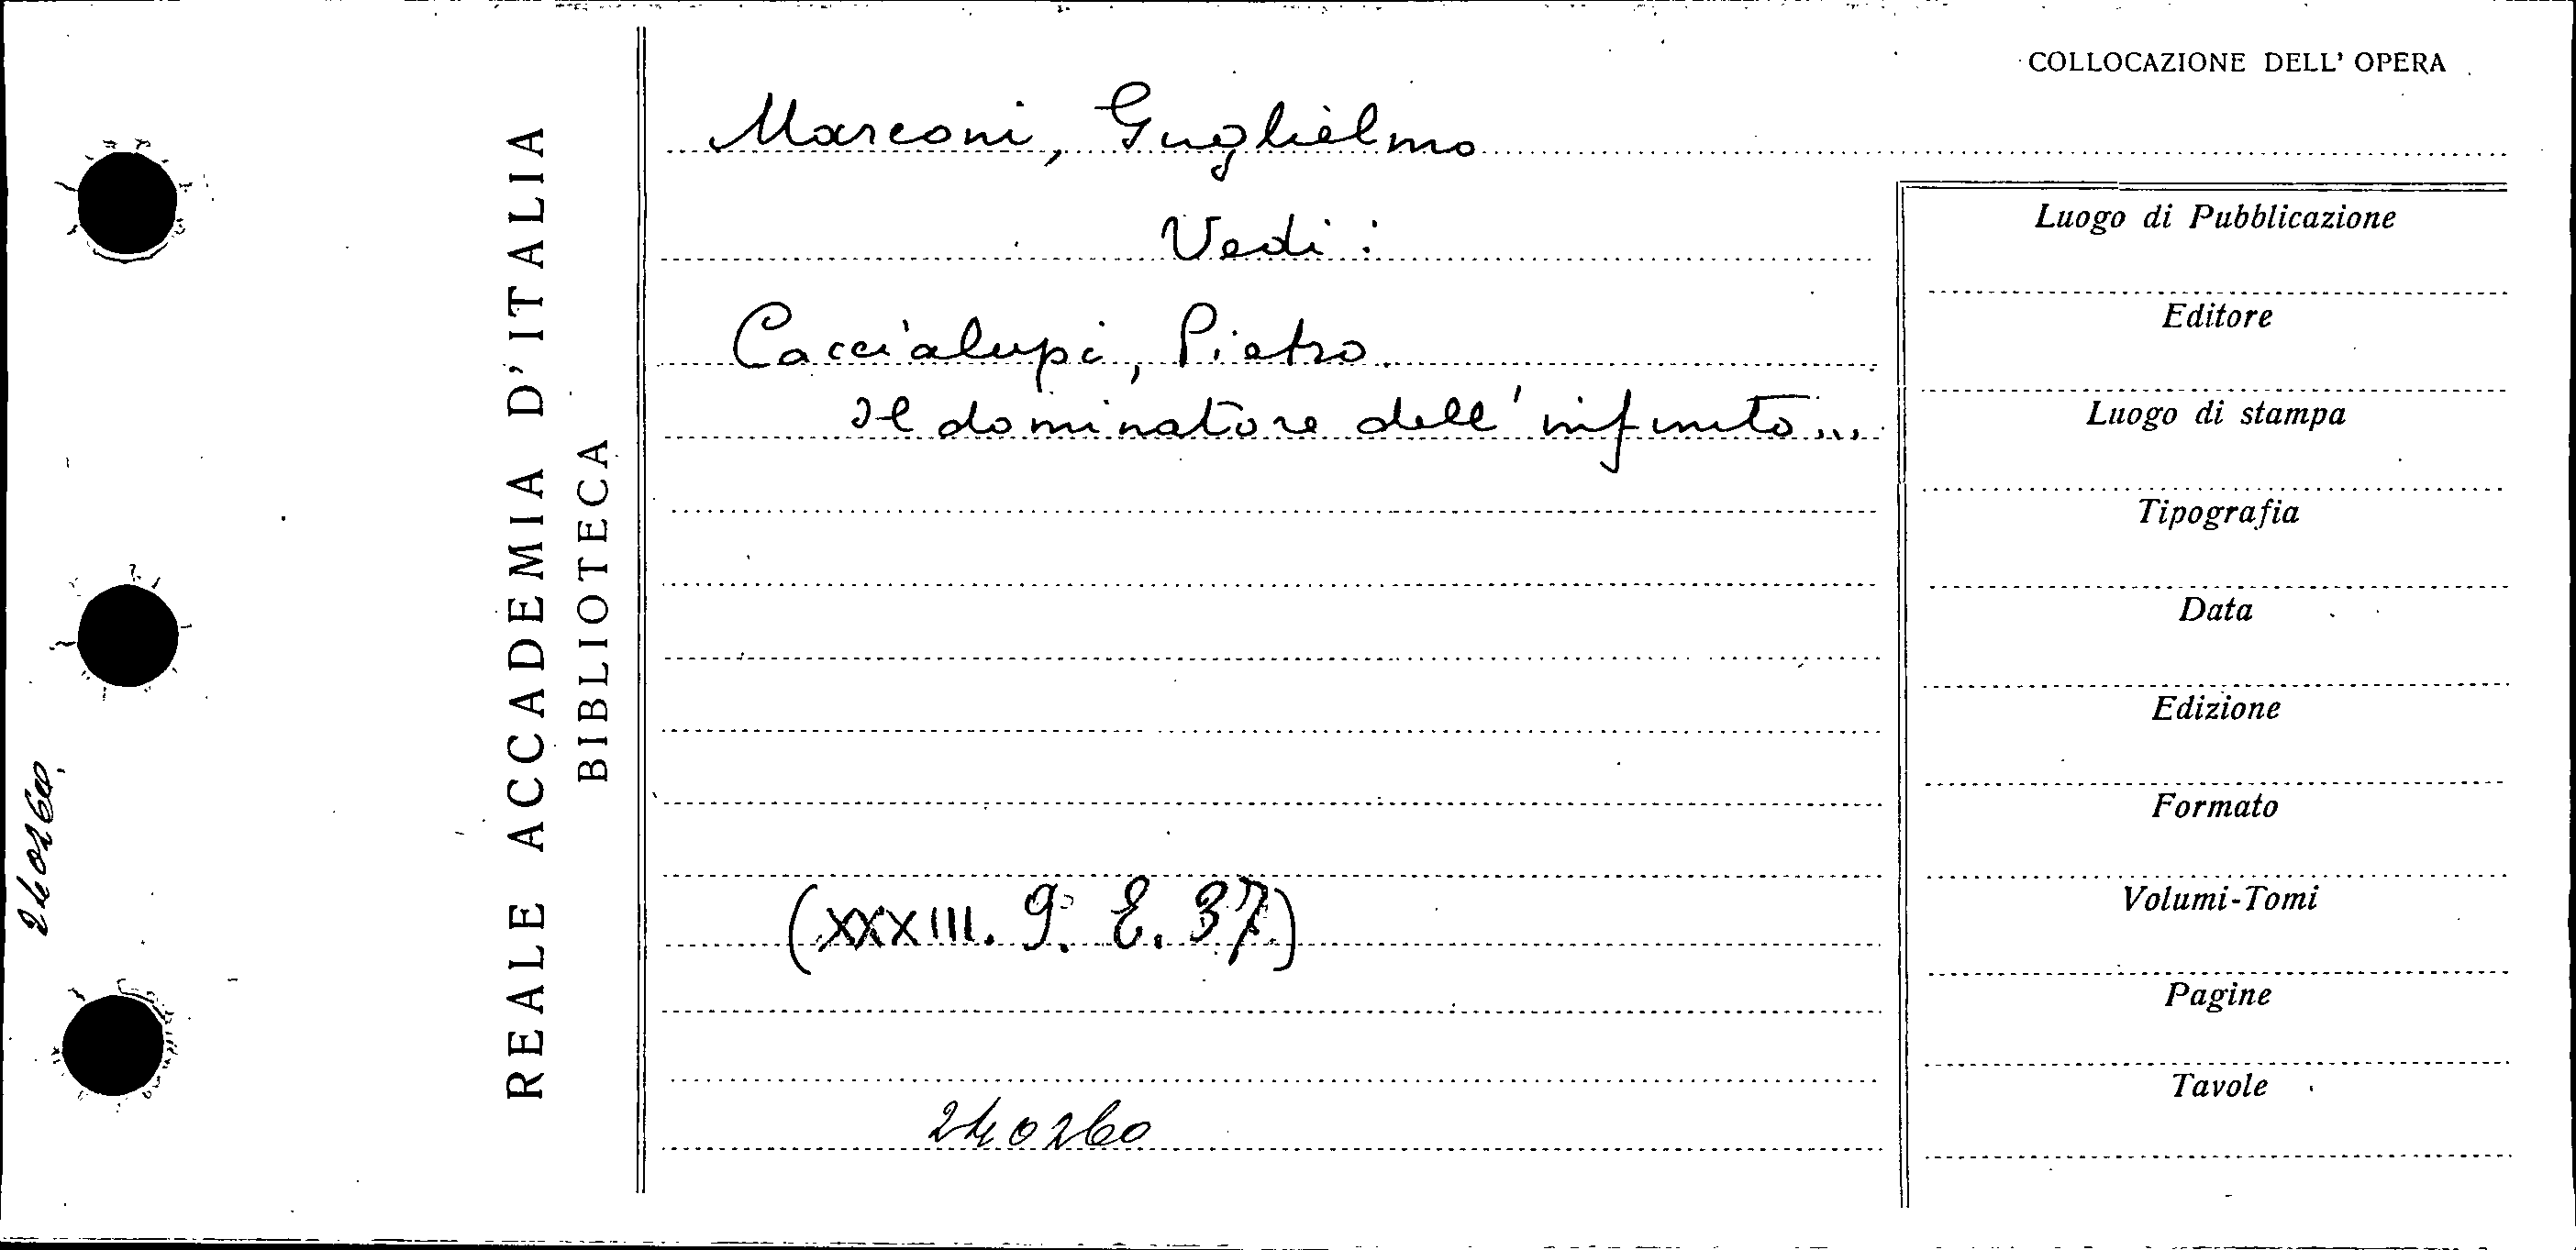 COLLOCAZIONE DELL' OPERA
Marconi, Guglielmo
Vedi:
Caccialupi, Pietro
Il dominatore dell'infinito...
(XXXIII. 9. E. 37.)
240260
REALE ACCADEMIA D'ITALIA
BIBLIOTECA
240260
Luogo di Pubblicazione
Editore
Luogo di stampa
Tipografia
Data
Edizione
Formato
Volumi-Tomi
Pagine
Tavole